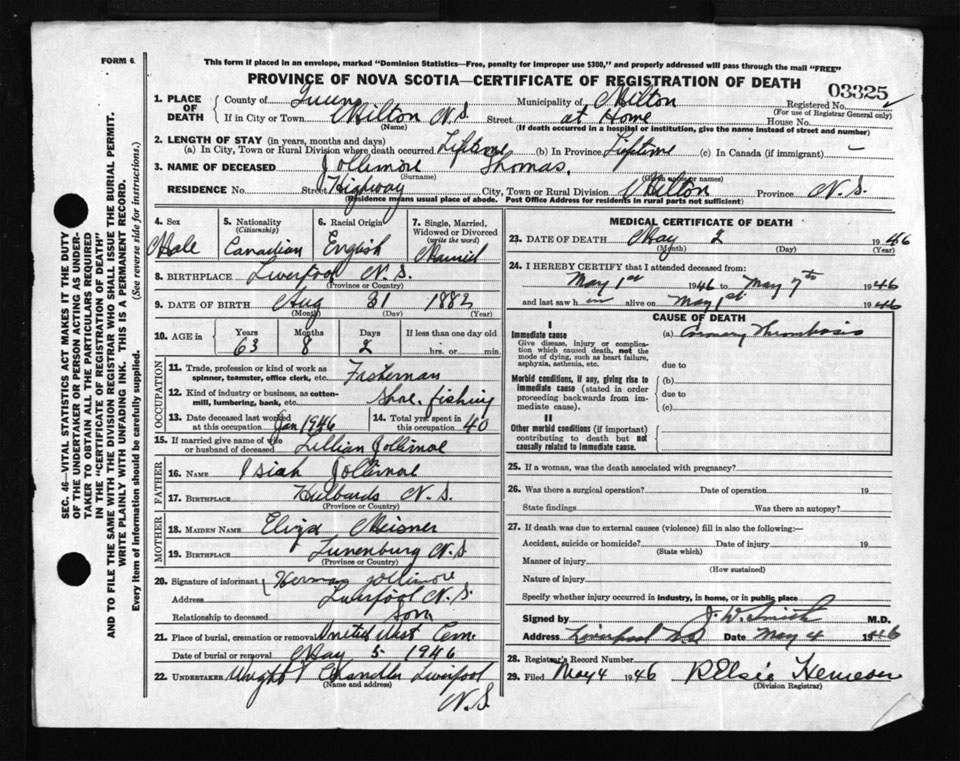 FORM 6
This form if placed in an envelope, marked "Dominion Statistics—Free, penalty for improper use $300," and properly addressed will pass through the mail "FREE"
PROVINCE OF NOVA SCOTIA—CERTIFICATE OF REGISTRATION OF DEATH
03325
1. PLACE OF DEATH County of Queens Municipality of Milton Registered No.
(For use of Registrar General only)
If in City or Town Milton N.S. Street at Home House No.
(Name) (If death occurred in a hospital or institution, give the name instead of street and number)
2. LENGTH OF STAY (in years, months and days)
(a) In City, Town or Rural Division where death occurred Lifetime (b) In Province Lifetime (c) In Canada (if immigrant) —
3. NAME OF DECEASED Jollimore Thomas.
(Surname) (Given or names)
RESIDENCE No. Street Highway City, Town or Rural Division Milton Province N.S.
(Residence means usual place of abode. Post Office Address for residents in rural parts not sufficient)
4. Sex 5. Nationality 6. Racial Origin 7. Single, Married,
(Citizenship) Widowed or Divorced
(write the word)
Male Canadian English Married
8. BIRTHPLACE Liverpool N.S.
(Province or Country)
9. DATE OF BIRTH Aug 31 1882
(Month) (Day) (Year)
10. AGE in Years Months Days If less than one day old
63 8 2 hrs. or min.
OCCUPATION
11. Trade, profession or kind of work as
spinner, teamster, office clerk, etc.
12. Kind of industry or business, as cotten-
mill, lumbering, bank, etc. fishing
13. Date deceased last worked at this occupation Jan 1946 14. Total yrs. spent in this occupation 40
15. If married give name of wife
or husband of deceased Lillian Jollimore
FATHER
16. NAME Isiah Jollimore
17. BIRTHPLACE Hubbards N.S.
(Province or Country)
MOTHER
18. MAIDEN NAME Eliza Meisner
19. BIRTHPLACE Lunenburg N.S.
(Province or Country)
20. Signature of informant Herman Jollimore
Address Liverpool N.S.
Relationship to deceased Son
21. Place of burial, cremation or removal Cem.
Date of burial or removal May 5 1946
22. UNDERTAKER Wright Chandler Liverpool
(Name and address) N.S.
MEDICAL CERTIFICATE OF DEATH
23. DATE OF DEATH May 2 1946
(Month) (Day) (Year)
24. I HEREBY CERTIFY that I attended deceased from:
May 1st 1946 to May 7th 1946
and last saw him alive on May 1st 1946
CAUSE OF DEATH
I
Immediate cause (a) Coronary Thrombosis
Give disease, injury or complica-
tion which caused death, not the
mode of dying, such as heart failure,
asphyxia, asthenia, etc. due to
Morbid conditions, if any, giving rise to (b)
immediate cause (stated in order
proceeding backwards from im-
mediate cause). due to
(c)
II
Other morbid conditions (if important)
contributing to death but not
causally related to immediate cause.
25. If a woman, was the death associated with pregnancy?
26. Was there a surgical operation? Date of operation 19
State findings Was there an autopsy?
27. If death was due to external causes (violence) fill in also the following:—
Accident, suicide or homicide? Date of injury 19
(State which)
Manner of injury
(How sustained)
Nature of injury
Specify whether injury occurred in industry, in home, or in public place
Signed by J. W. Smith M.D.
Address Liverpool NS Date May 4 1946
28. Registrar's Record Number
29. Filed May 4 1946 Elsie
(Division Registrar)
SEC. 46—VITAL STATISTICS ACT MAKES IT THE DUTY
OF THE UNDERTAKER OR PERSON ACTING AS UNDER-
TAKER TO OBTAIN ALL THE PARTICULARS REQUIRED
IN THE "CERTIFICATE OF REGISTRATION OF DEATH"
AND TO FILE THE SAME WITH THE DIVISION REGISTRAR WHO SHALL ISSUE THE BURIAL PERMIT.
WRITE PLAINLY WITH UNFADING INK. THIS IS A PERMANENT RECORD.
Every item of Information should be carefully supplied. (See reverse side for instructions.)